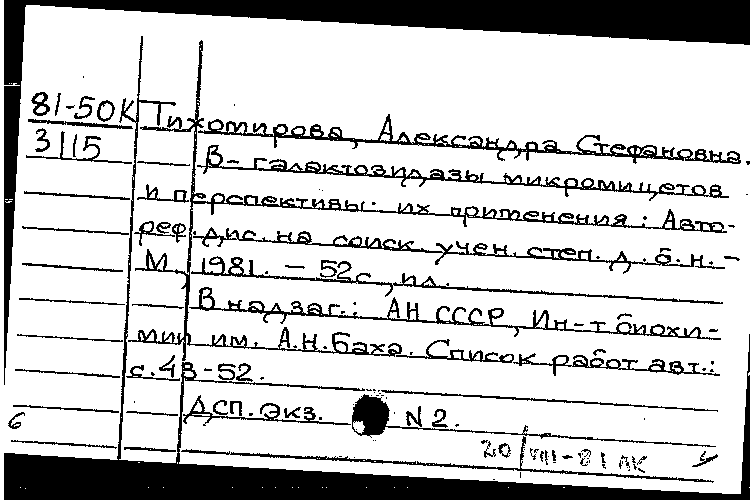 81-50К Тихомирова, Александра Стефановна.
3115
β-галактозидазы микромицетов
и перспективы их применения: Авто-
реф. дис. на соиск. учен. степ. д.б.н. –
М., 1981. – 52с., ил.
В надзаг.: АН СССР, Ин-т биохи-
мии им. А.Н.Баха. Список работ авт.:
с.43-52.
ДСП. Экз. N 2.
6
20/VIII-81 ЛК